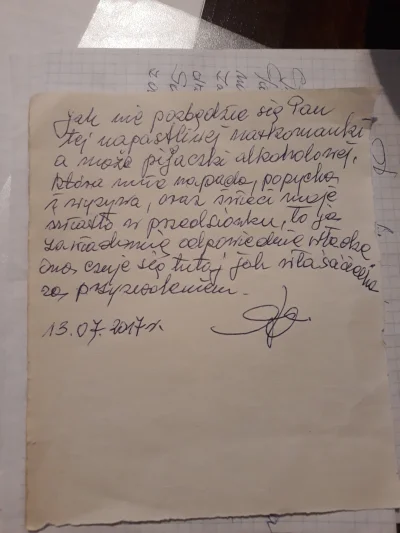 Jak nie pozbędzie się Pan
tej napastliwej narkomanki
a może pijaczki alkoholowej,
która mnie napada, popycha
i wyzywa, oraz śmieci moje
miasto w przedsionku, to ja
zawiadomię odpowiednie władze
ona czuje się tutaj jak właścicielka
za przyzwoleniem.
13.07.2017 r.